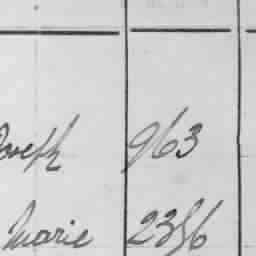 Joseph 963
Marie 2356